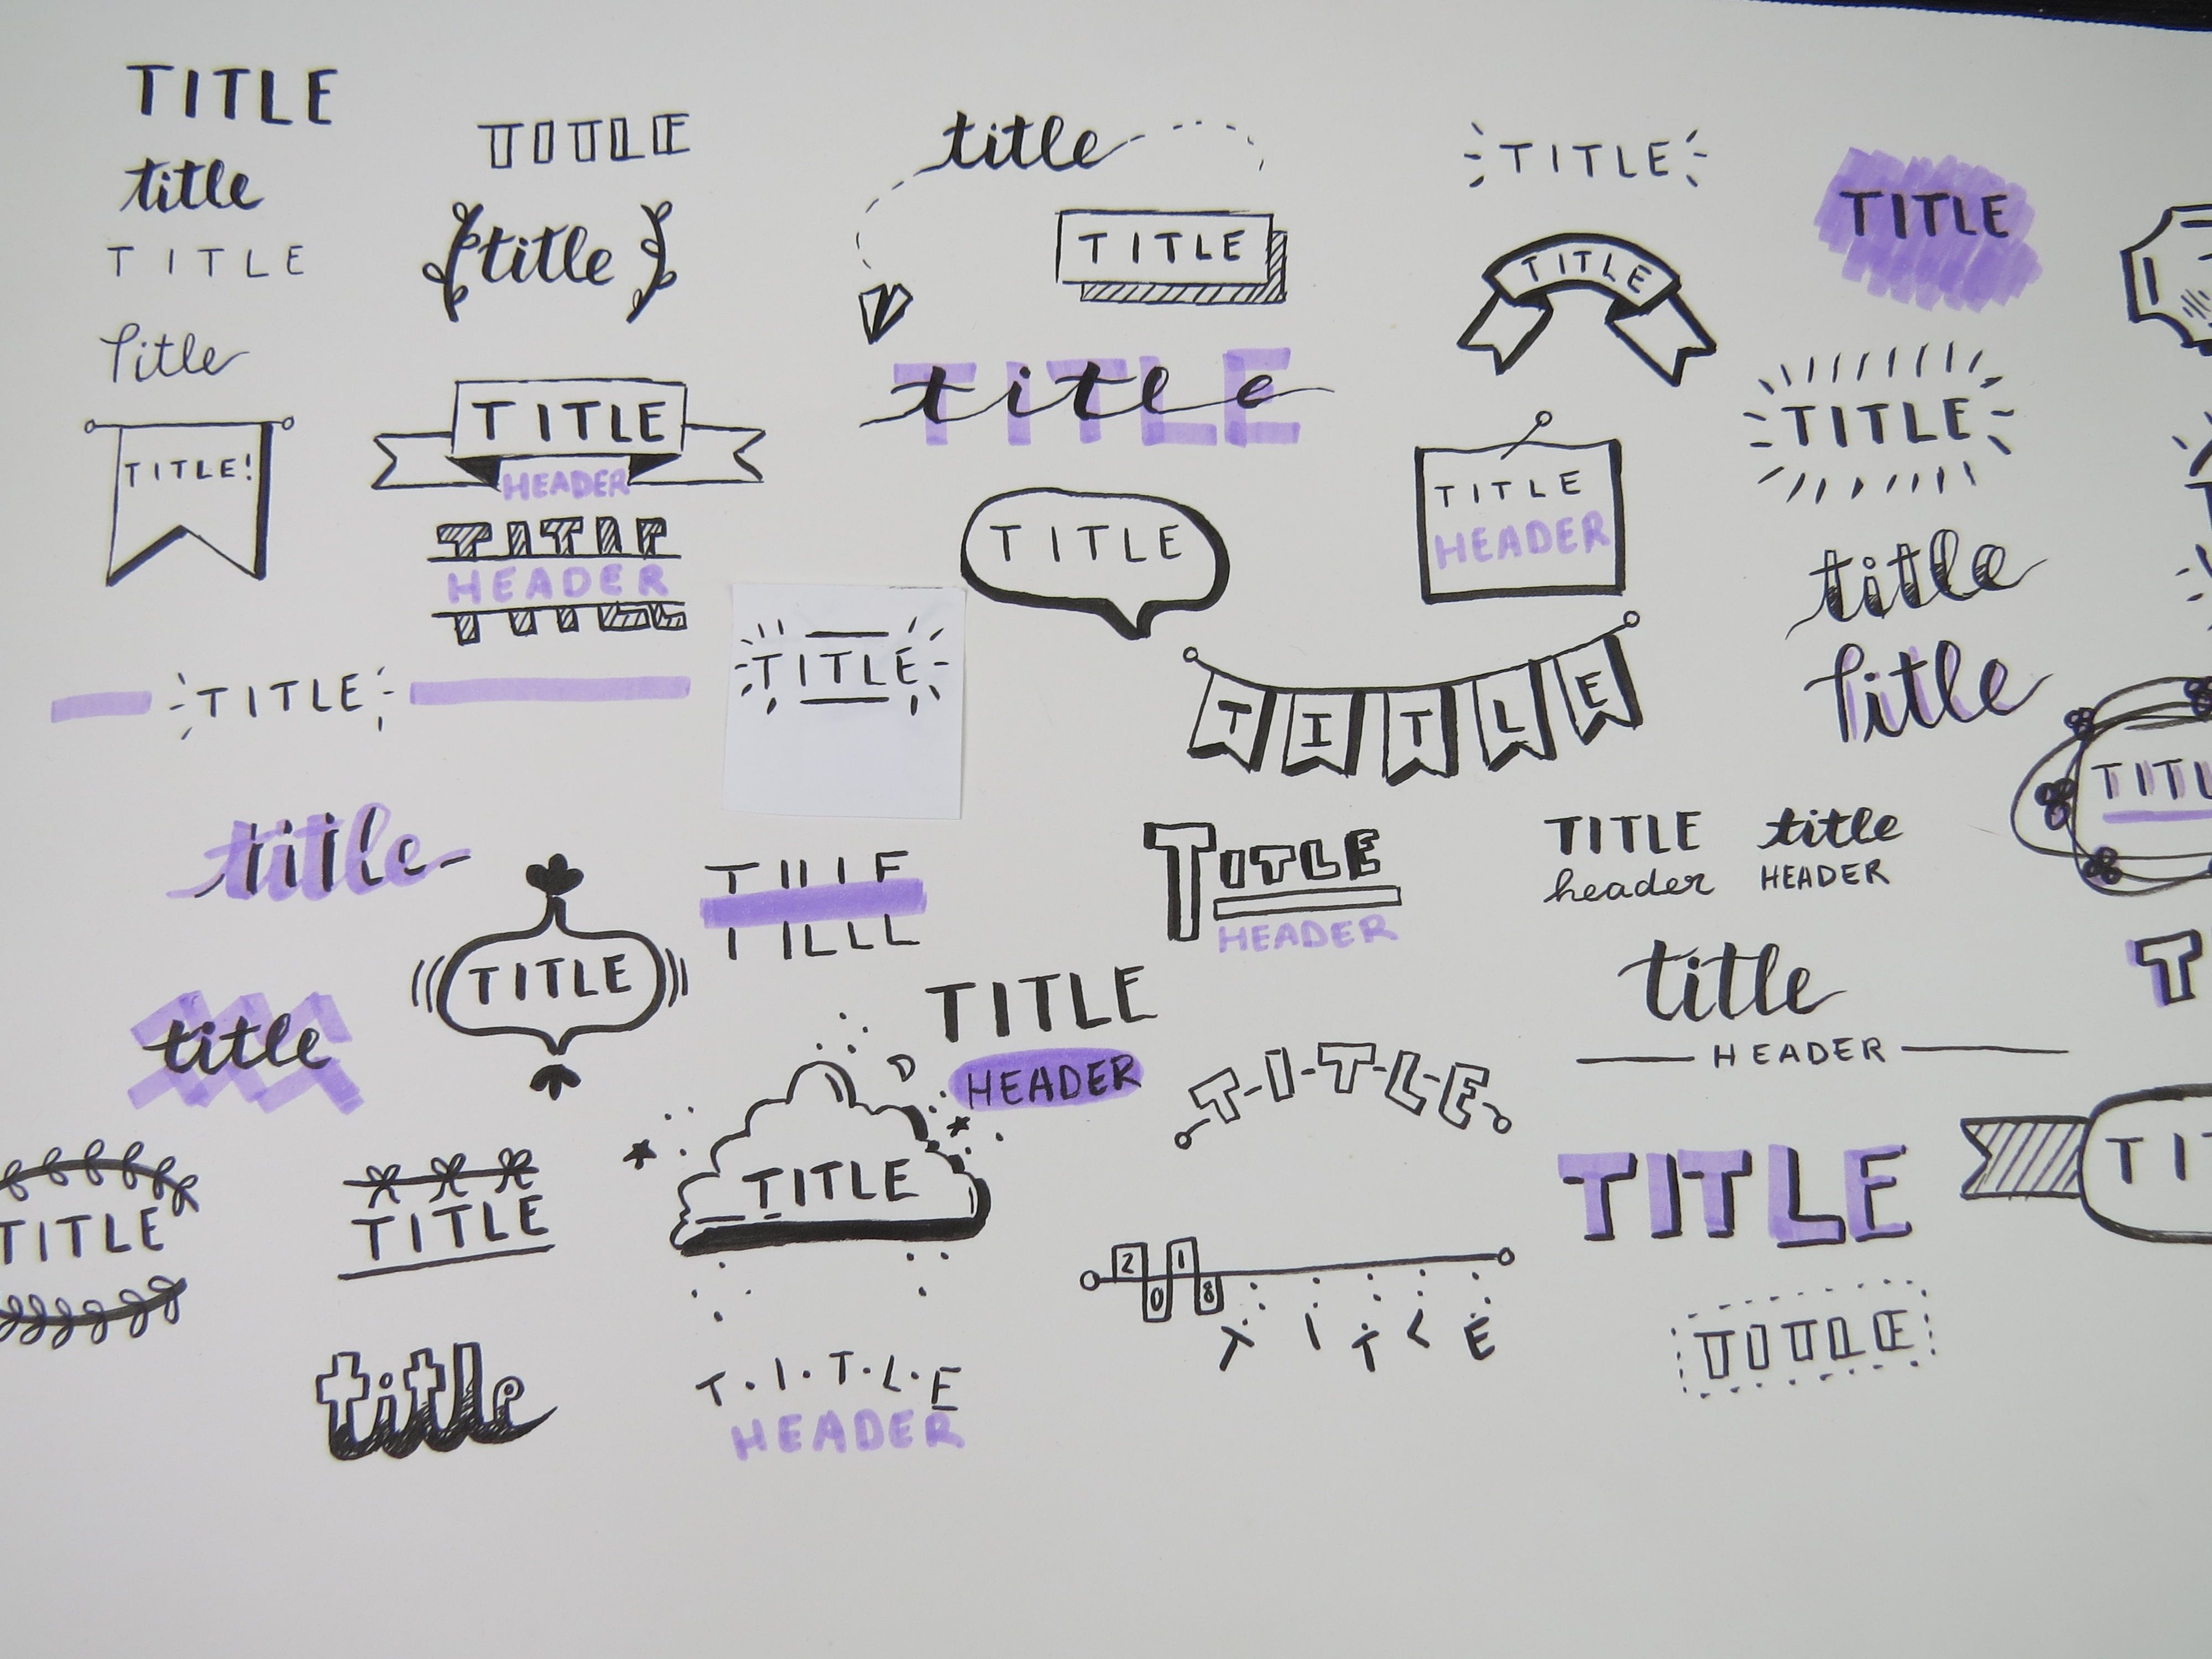 TITLE
title
TITLE
title
TITLE!
TITLE
title
TITLE
HEADER
TITLE
HEADER
TITLE
title
TITLE
title
TITLE
TITLE
title
TITLE
title
TITLE
title
TITLE
TITLE
TITLE
TITLE
TITLE
HEADER
TITLE
TITLE
HEADER
T.I.T.L.E
HEADER
TITLE
TITLE
TITLE
HEADER
TITLE
TITLE
HEADER
T-I-T-L-E
2018
TITLE
TITLE
TITLE
title
title
TITLE
header
title
HEADER
title
HEADER
TITLE
TITLE
TITL
T
TI